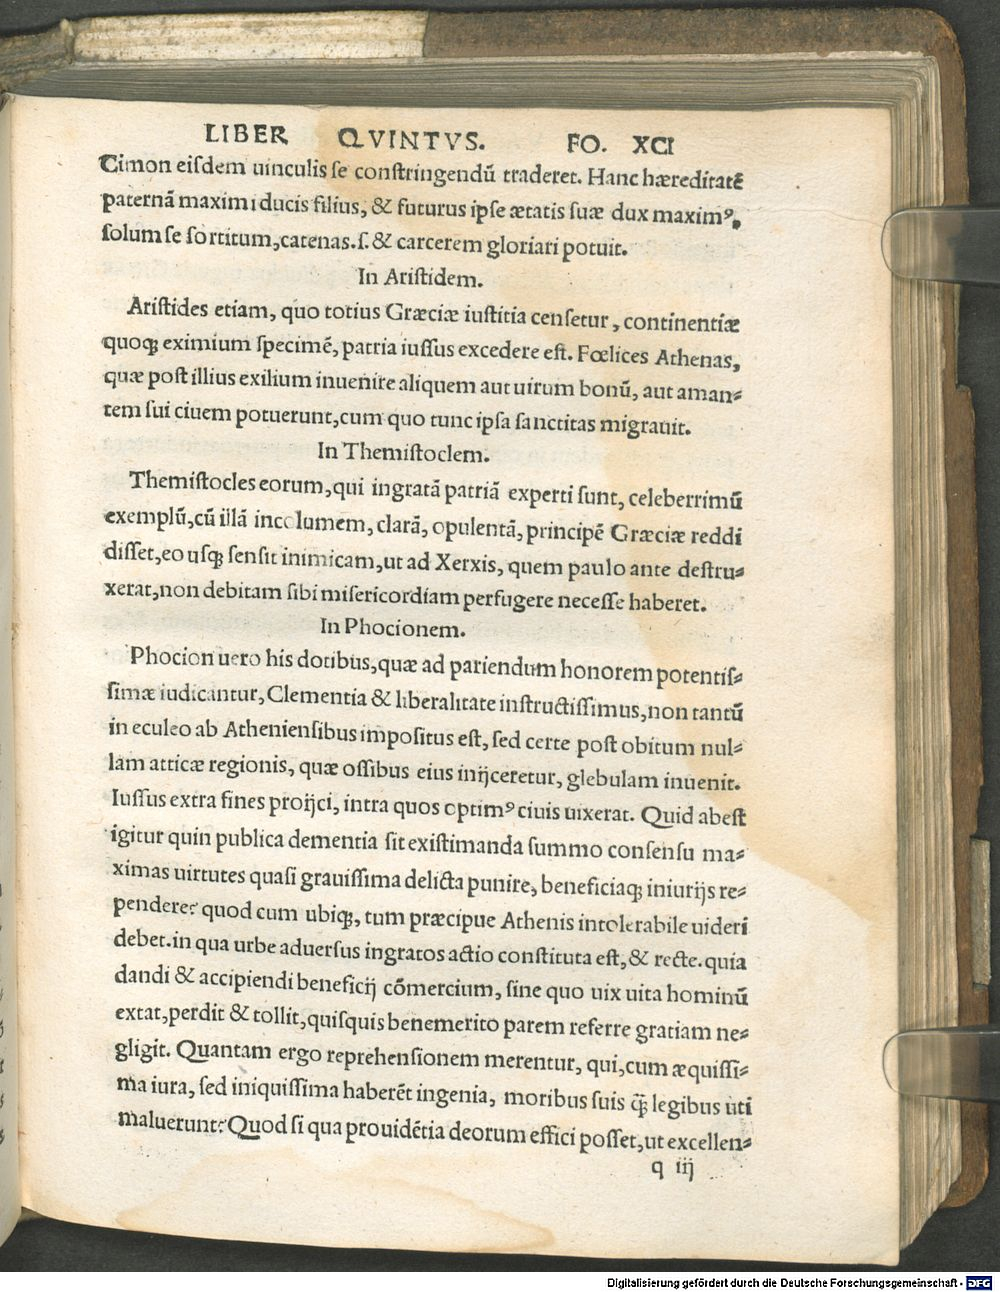 LIBER QVINTVS. FO. XCI
Cimon eiſdem uinculis ſe conſtringendū traderet. Hanc hæreditatē
paternā maximi ducis filius, & futurus ipſe ætatis ſuæ dux maximꝰ,
ſolum ſe ſortitum, catenas.ſ. & carcerem gloriari potuit.
In Ariſtidem.
Ariſtides etiam, quo totius Græciæ iuſtitia cenſetur, continentiæ
quoqꝫ eximium ſpecimē, patria iuſſus excedere eſt. Fœlices Athenas,
quæ poſt illius exilium inuenire aliquem aut uirum bonū, aut aman⸗
tem ſui ciuem potuerunt, cum quo tunc ipſa ſanctitas migrauit.
In Themiſtoclem.
Themiſtocles eorum, qui ingratā patriā experti ſunt, celeberrimū
exemplū, cū illā incolumem, clarā, opulentā, principē Græciæ reddi
diſſet, eo uſqꝫ ſenſit inimicam, ut ad Xerxis, quem paulo ante deſtru⸗
xerat, non debitam ſibi miſericordiam perfugere neceſſe haberet.
In Phocionem.
Phocion uero his dotibus, quæ ad pariendum honorem potentiſ⸗
ſimæ iudicantur, Clementia & liberalitate inſtructiſſimus, non tantū
in eculeo ab Athenienſibus impoſitus eſt, ſed certe poſt obitum nul⸗
lam atticæ regionis, quæ oſſibus eius inijceretur, glebulam inuenit.
Iuſſus extra fines proijci, intra quos optimꝰ ciuis uixerat. Quid abeſt
igitur quin publica dementia ſit exiſtimanda ſummo conſenſu ma⸗
ximas uirtutes quaſi grauiſſima delicta punire, beneficiaqꝫ iniurijs re⸗
pendere? quod cum ubiqꝫ, tum præcipue Athenis intolerabile uideri
debet. in qua urbe aduerſus ingratos actio conſtituta eſt, & recte. quia
dandi & accipiendi beneficij cōmercium, ſine quo uix uita hominū
extat, perdit & tollit, quiſquis benemerito parem referre gratiam ne⸗
gligit. Quantam ergo reprehenſionem merentur, qui, cum æquiſſi⸗
ma iura, ſed iniquiſſima haberēt ingenia, moribus ſuis q̄ꝫ legibus uti
maluerunt? Quod ſi qua prouidētia deorum effici poſſet, ut excellen⸗
q iij
Digitalisierung gefördert durch die Deutsche Forschungsgemeinschaft - DFG